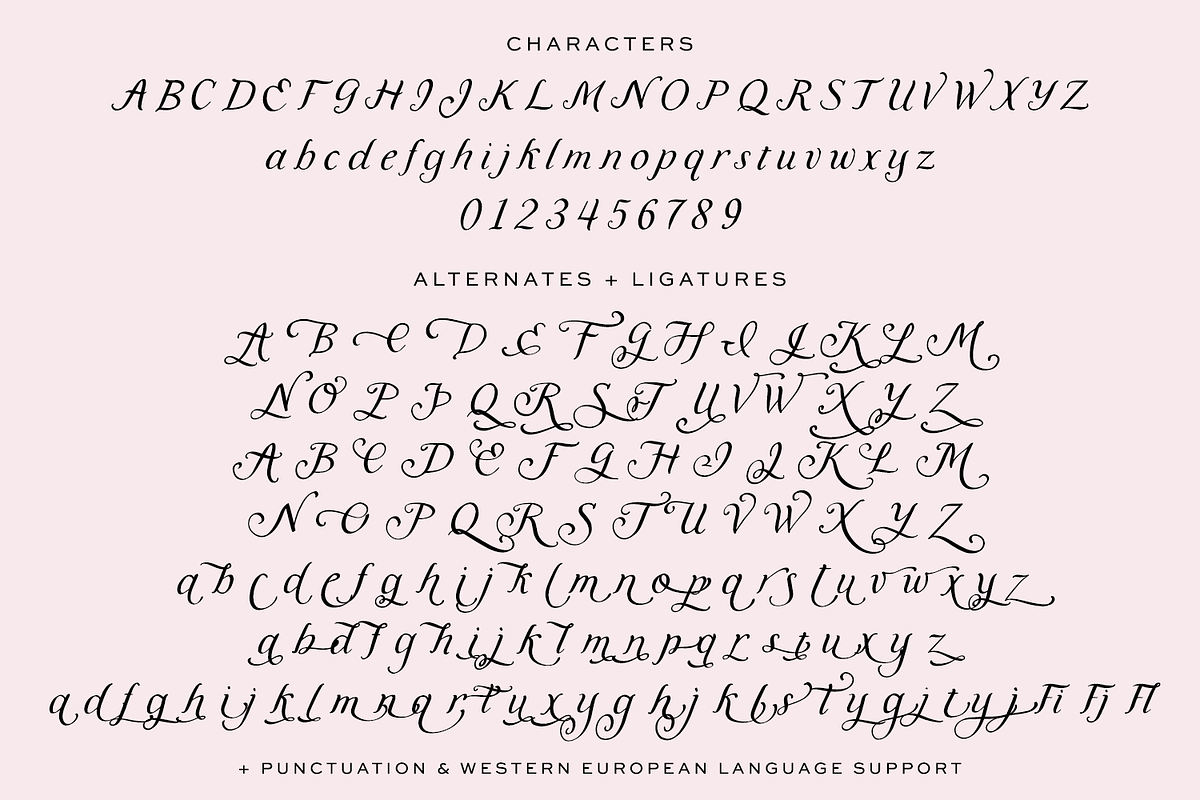 CHARACTERS
A B C D E F G H I J K L M N O P Q R S T U V W X Y Z
a b c d e f g h i j k l m n o p q r s t u v w x y z
0 1 2 3 4 5 6 7 8 9
ALTERNATES + LIGATURES
A B C D E F G H I J K L M
N O P P Q R S T U V W X Y Z
A B C D E F G H I J K L M
N O P Q R S T U V W X Y Z
a b c d e f g h i j k l m n o p q r s t u v w x y z
a b d f g h i j k l m n p q r s t u x y z
a d f g h i j k l m n q r t u x y g h j k b s T y g j t y j Fi Fj Fl
+ PUNCTUATION & WESTERN EUROPEAN LANGUAGE SUPPORT